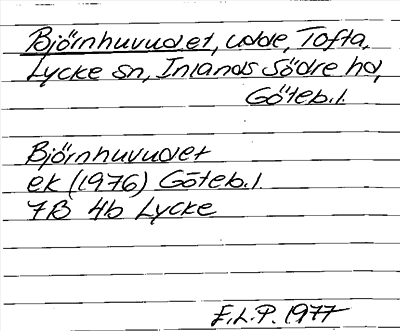 Björnhuvudet, udde, Tofta,
Lycke sn, Inlands Södre hd,
Göteb.l.
Björnhuvudet
ek (1976) Göteb.l.
7B 4b Lycke
E.L.P. 1977